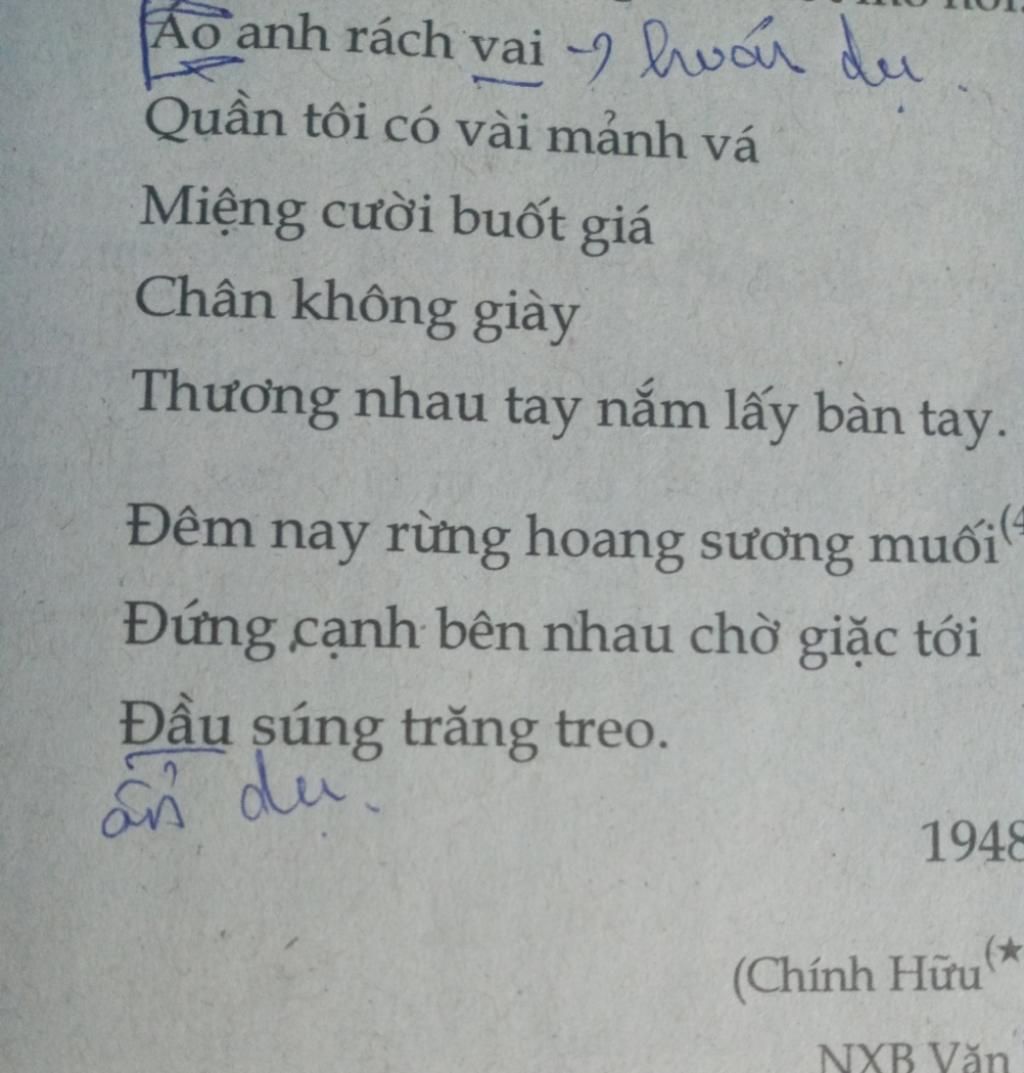 Áo anh rách vai → hoán dụ.
Quần tôi có vài mảnh vá
Miệng cười buốt giá
Chân không giày
Thương nhau tay nắm lấy bàn tay.
Đêm nay rừng hoang sương muối(4
Đứng cạnh bên nhau chờ giặc tới
Đầu súng trăng treo.
ẩn dụ.
1948
(Chính Hữu(★
NXB Văn